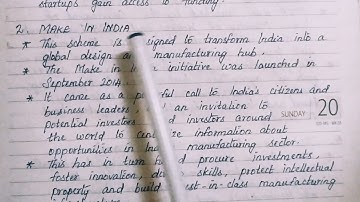 startups gain access to funding.
2. MAKE IN INDIA
* This scheme is signed to transform India into a
global design manufacturing hub.
* The Make in initiative was launched in
September 201
* It came as a ful call to India's citizens and
business leaders, an invitation to
potential investors d investors around
the world to ce ze information about
opportunities in manufacturing sector.
* This has in turn h procure investments,
foster innovation, d skills, protect intellectual
property and build est-in-class manufacturing
SUNDAY 20